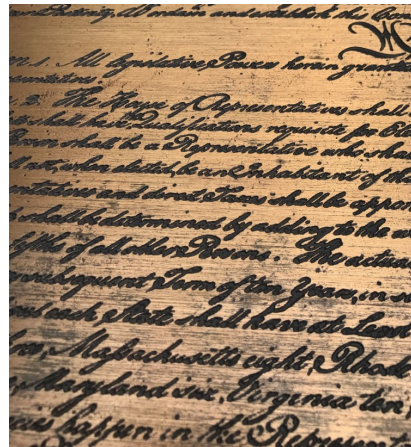 Posterity, do ordain and establish this Con
n. 1. All legislative Powers herein grante
esentatives.
n. 2. The House of Representatives shall
ate shall have Qualifications requisite for Ele
Person shall be a Representative who shal
ll not, when elected, be an Inhabitant of tha
sentatives and direct Taxes shall be appor
h shall be determined by adding to the w
fifths of all other Persons. The actua
subsequent Term of ten Years, in su
but each State shall have at Least
three, Massachusetts eight, Rhode
Maryland six, Virginia ten,
cies happen in the Representat